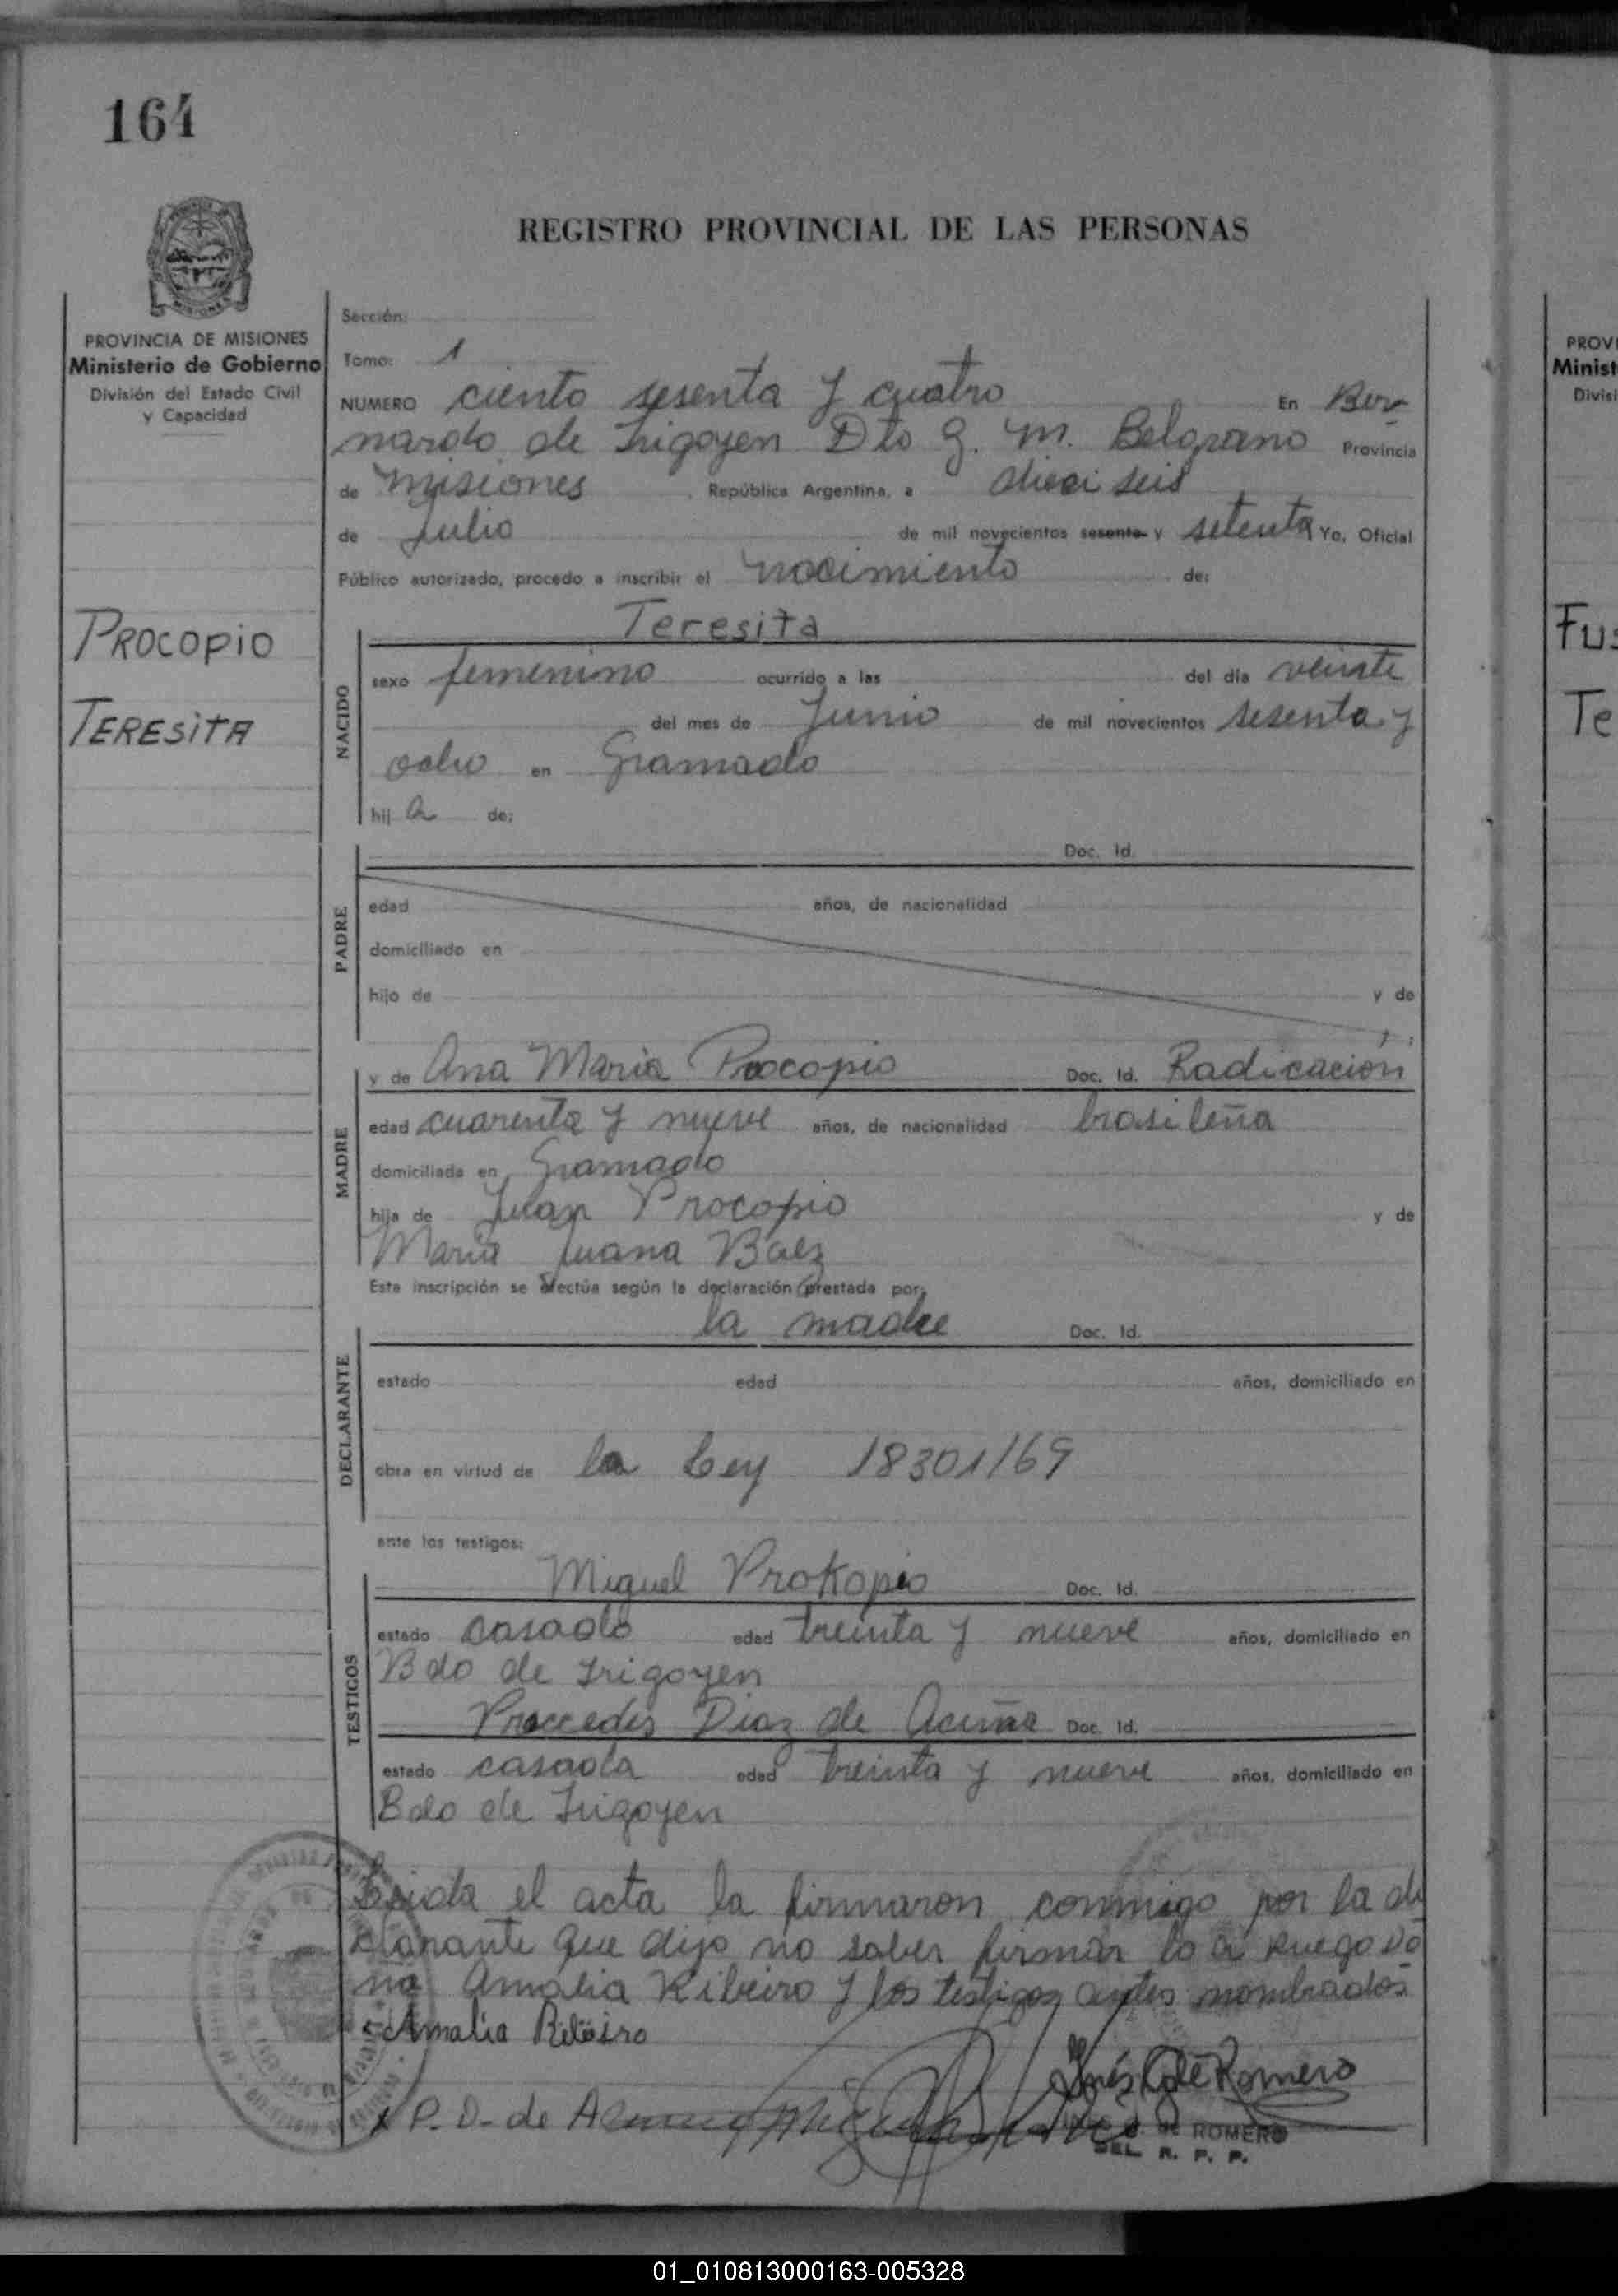 164
REGISTRO PROVINCIAL DE LAS PERSONAS
MISIONES
PROVINCIA DE MISIONES
Ministerio de Gobierno
División del Estado Civil
y Capacidad
PROCOPIO
TERESITA
Sección:
Tomo: 1
NUMERO ciento sesenta y cuatro En Ber-
nardo de Irigoyen Dto G. M. Belgrano Provincia
de Misiones, República Argentina, a dieci seis
de Julio de mil novecientos sesenta y setenta Yo, Oficial
Público autorizado, procedo a inscribir el nacimiento de:
NACIDO
Teresita
sexo femenino ocurrido a las del día veinte
del mes de Junio de mil novecientos sesenta y
ocho en Gramado
hij a de:
PADRE
Doc. Id.
edad años, de nacionalidad
domiciliado en
hijo de y de
MADRE
y de Ana Maria Procopio Doc. Id. Radicación
edad cuarenta y nueve años, de nacionalidad brasileña
domiciliada en Gramado
hija de Juan Procopio y de
Maria Juana Baez
Esta inscripción se efectúa según la declaración prestada por:
DECLARANTE
la madre Doc. Id.
estado edad años, domiciliado en
obra en virtud de la Ley 18301/69
ante los testigos:
TESTIGOS
Miguel Prokopio Doc. Id.
estado casado edad treinta y nueve años, domiciliado en
Bdo de Irigoyen
Diaz de Acuña Doc. Id.
estado casada edad treinta y nueve años, domiciliado en
Bdo de Irigoyen
el acta la firmaron conmigo por la de
clarante que dijo no saber firmar lo a ruego Do
ña Amalia Ribeiro y los testigos antes nombrados
Amalia Ribeiro
Inés de Romero
P. D. de
de ROMERO
DEL. R. P. P.
PROVI
Minist
Divisi
Fus
Te
01_010813000163-005328